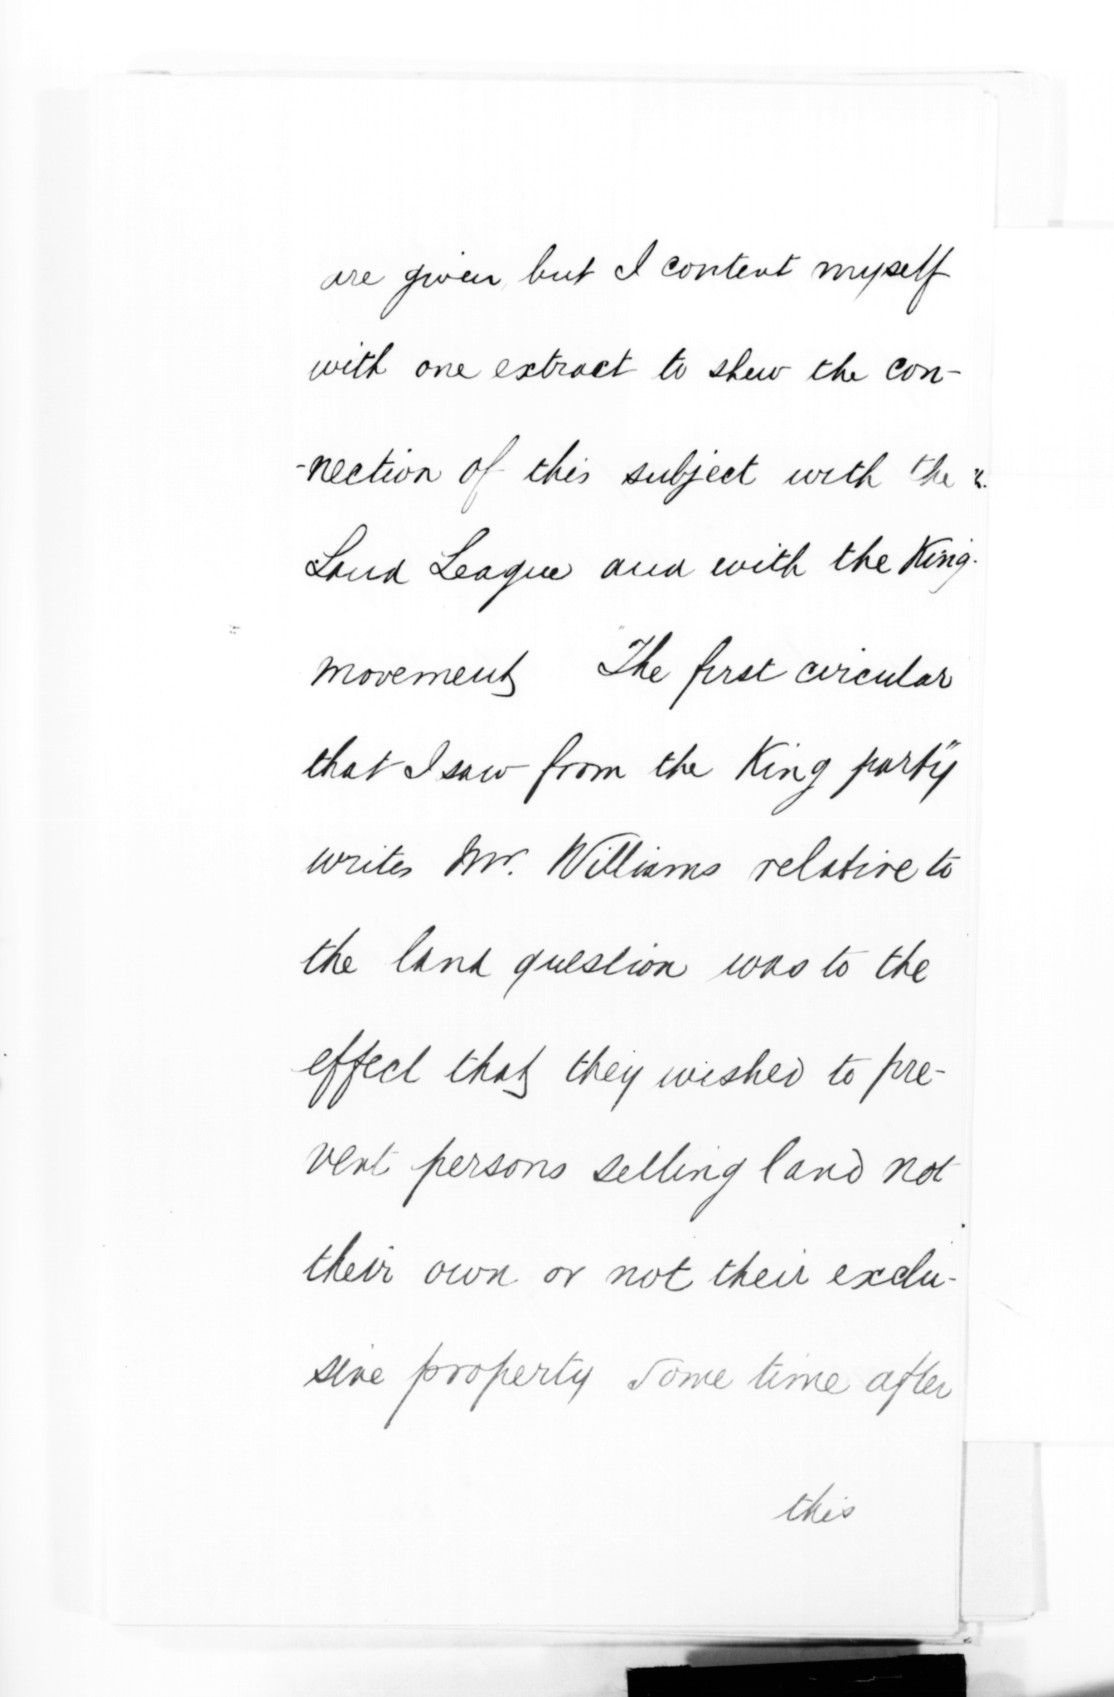 are given, but I content myself
with one extract to shew the con-
-nection of this subject with the
Land League and with the King
movement "The first circular
that I saw from the King party"
writes Mr. Williams relative to
the land question was to the
effect that they wished to pre-
vent persons selling land not
their own or not their exclu-
sive property Some time after
this